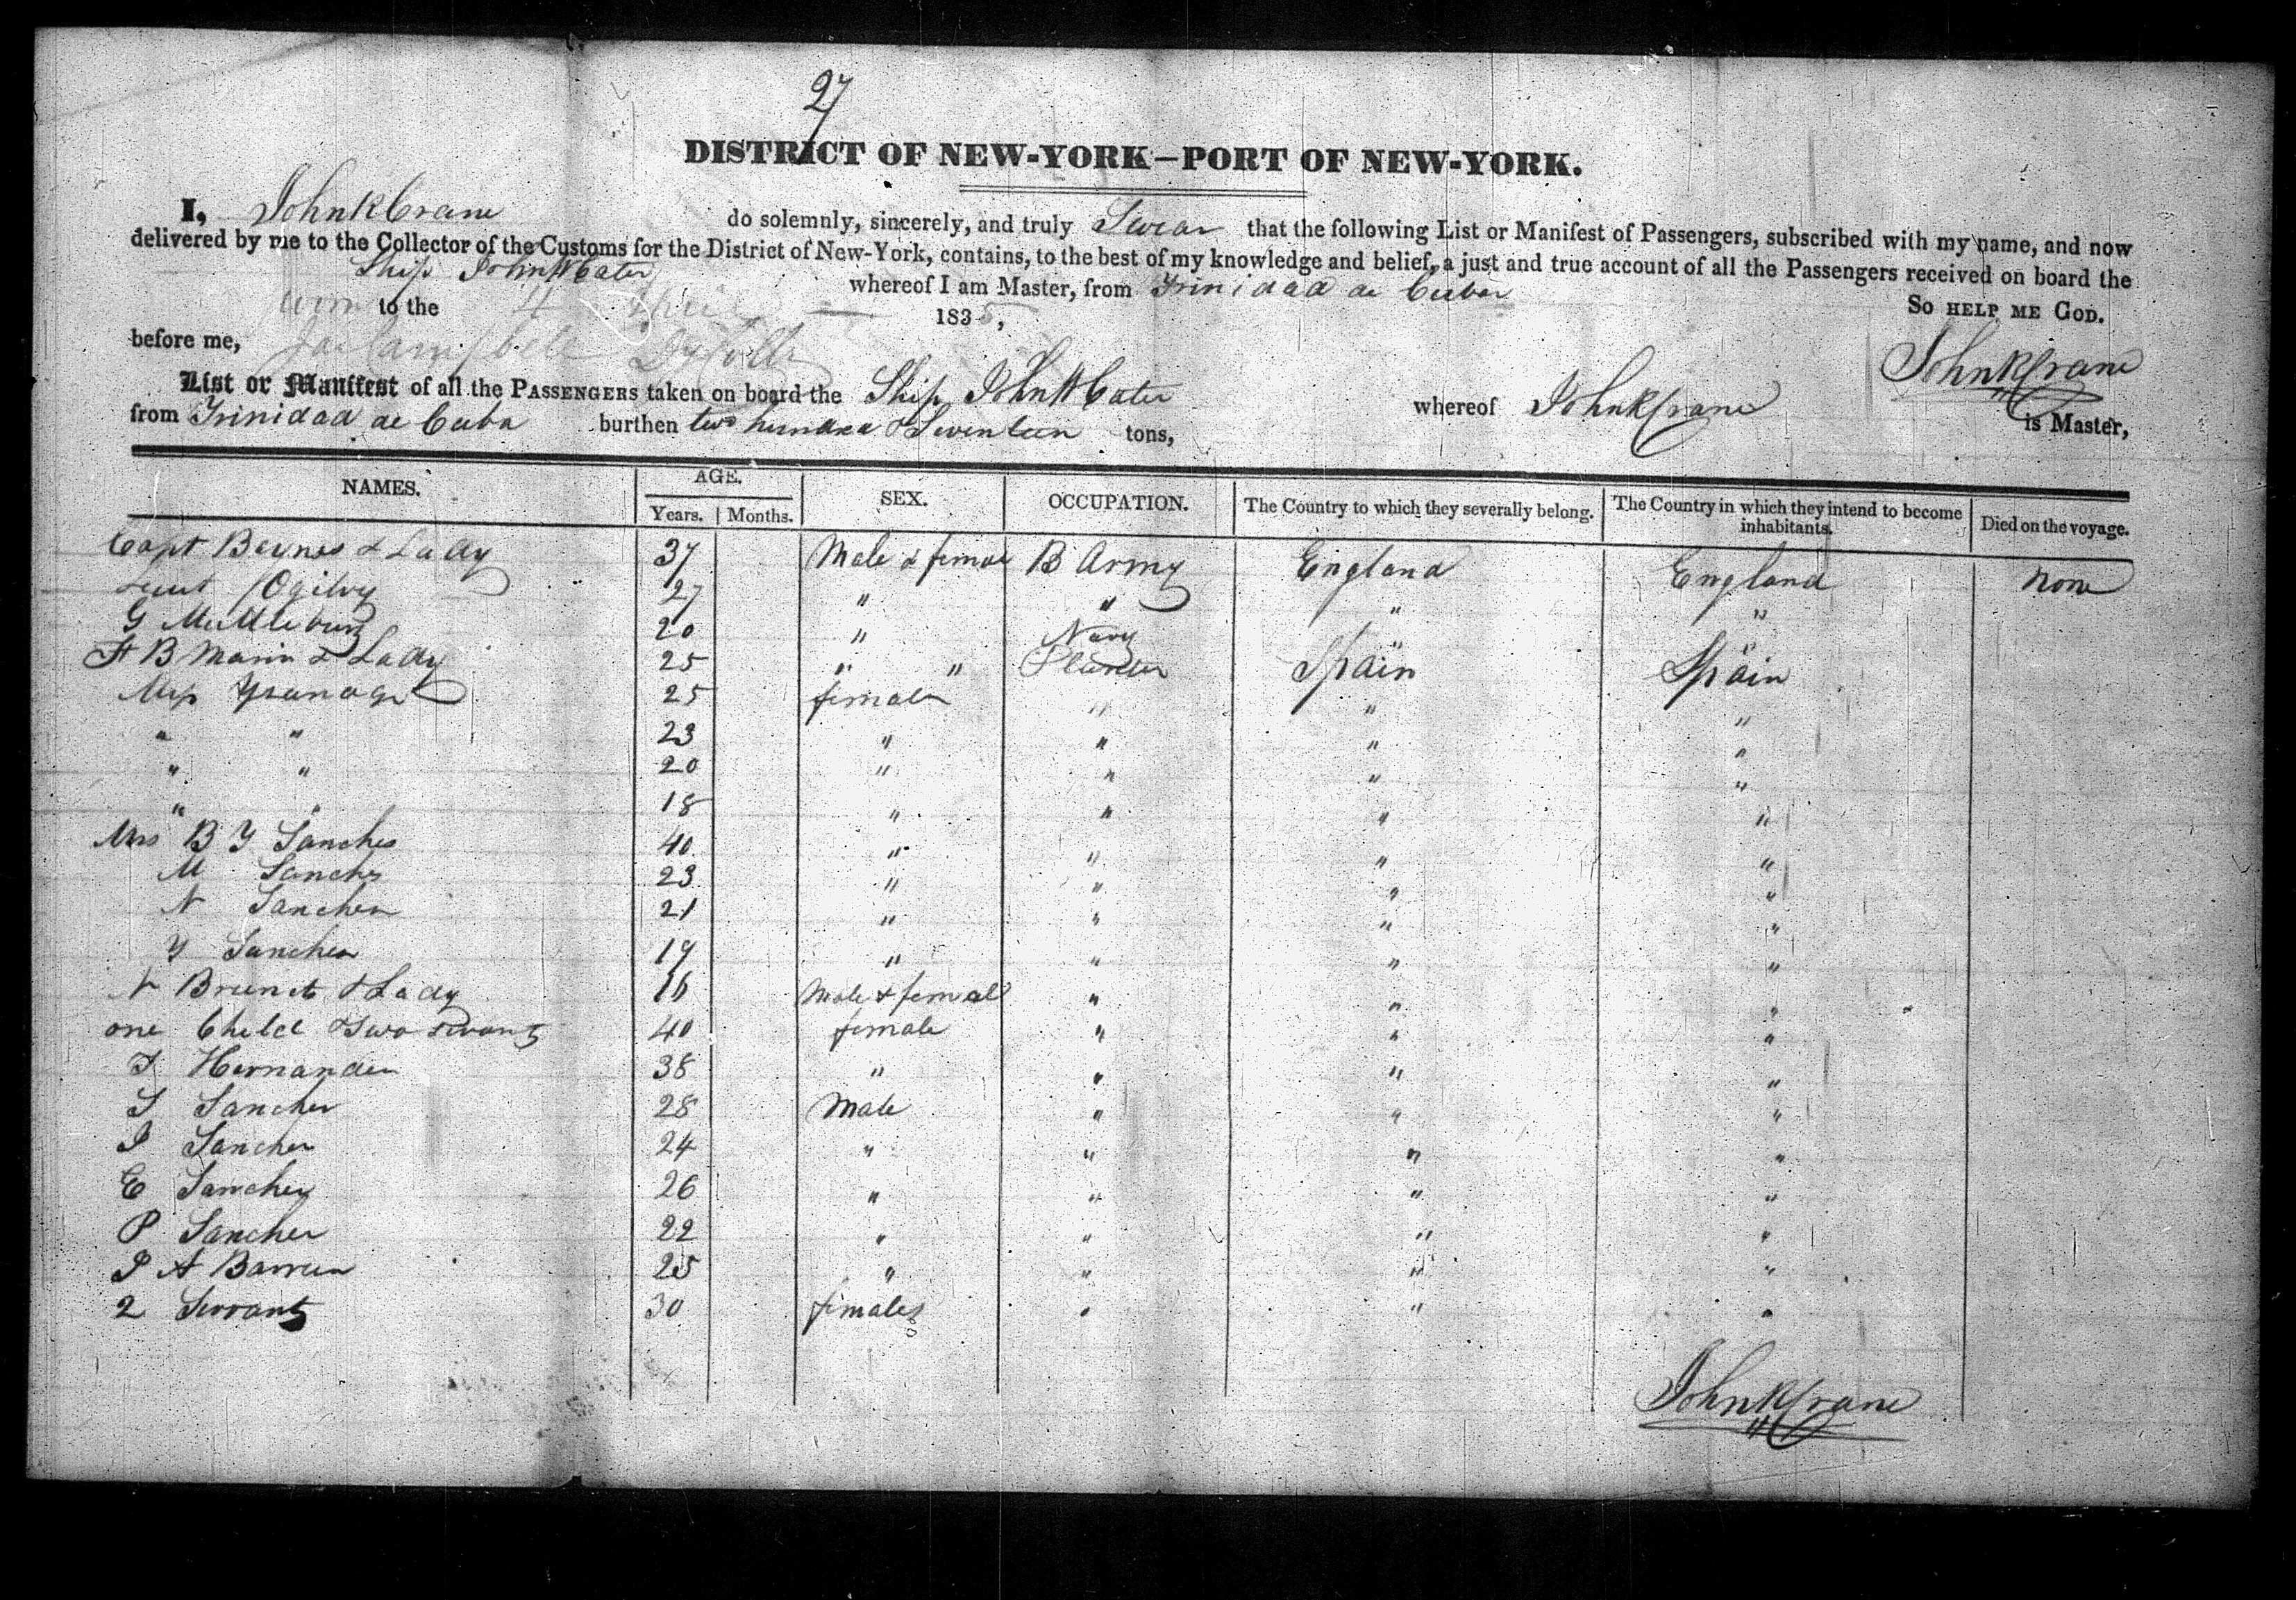 27
DISTRICT OF NEW-YORK—PORT OF NEW-YORK.
I, John K Crane do solemnly, sincerely, and truly Swear that the following List or Manifest of Passengers, subscribed with my name, and now
delivered by me to the Collector of the Customs for the District of New-York, contains, to the best of my knowledge and belief, a just and true account of all the Passengers received on board the
Ship John W Cater whereof I am Master, from Trinidad de Cuba
to the 4 1835, So HELP ME GOD.
before me, Campbell John K Crane
List or Manifest of all the PASSENGERS taken on board the Ship John W Cater whereof John K Crane is Master,
from Trinidad de Cuba burthen two hundred & Seventeen tons,
NAMES. AGE. SEX. OCCUPATION. The Country to which they severally belong. The Country in which they intend to become inhabitants. Died on the voyage.
Years. Months.
Capt Baynes & Lady 37 Male & female B Army England England None
Ogilvy 27 " " " "
G 20 " Navy " "
B Marin & Lady 25 " " Planter Spain Spain
Miss 25 female " " "
" " 23 " " " "
" " 20 " " " "
" " 18 " " " "
Mrs B Y Sanches 40 " " " "
M Sanches 23 " " " "
N Sanches 21 " " " "
Y Sanches 19 " " " "
N Brunet & Lady 16 Male & female " " "
one Child & two servants 40 female " " "
Hernandez 38 " " " "
S Sanches 28 Male " " "
J Sanches 24 " " " "
E Sanches 26 " " " "
P Sanches 22 " " " "
J A 25 " " " "
2 Servants 30 females " " "
John K Crane